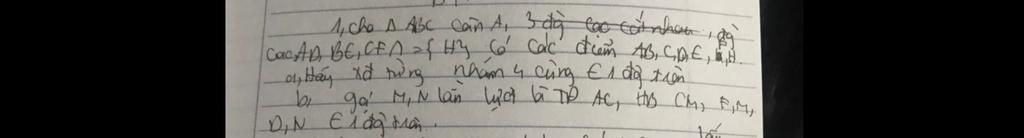 1, cho Δ ABC cân A, 3 đg cao cắt nhau, đg
cao AD, BE, CF ∩ = {H} Có các điểm AB, C, D, E, F, H.
a, Hãy xđ từng nhóm 4 cùng ∈ 1 đg tròn
b, gọi M, N lần lượt là TĐ AC, HB CM, F, M,
D, N ∈ 1 đg tròn.